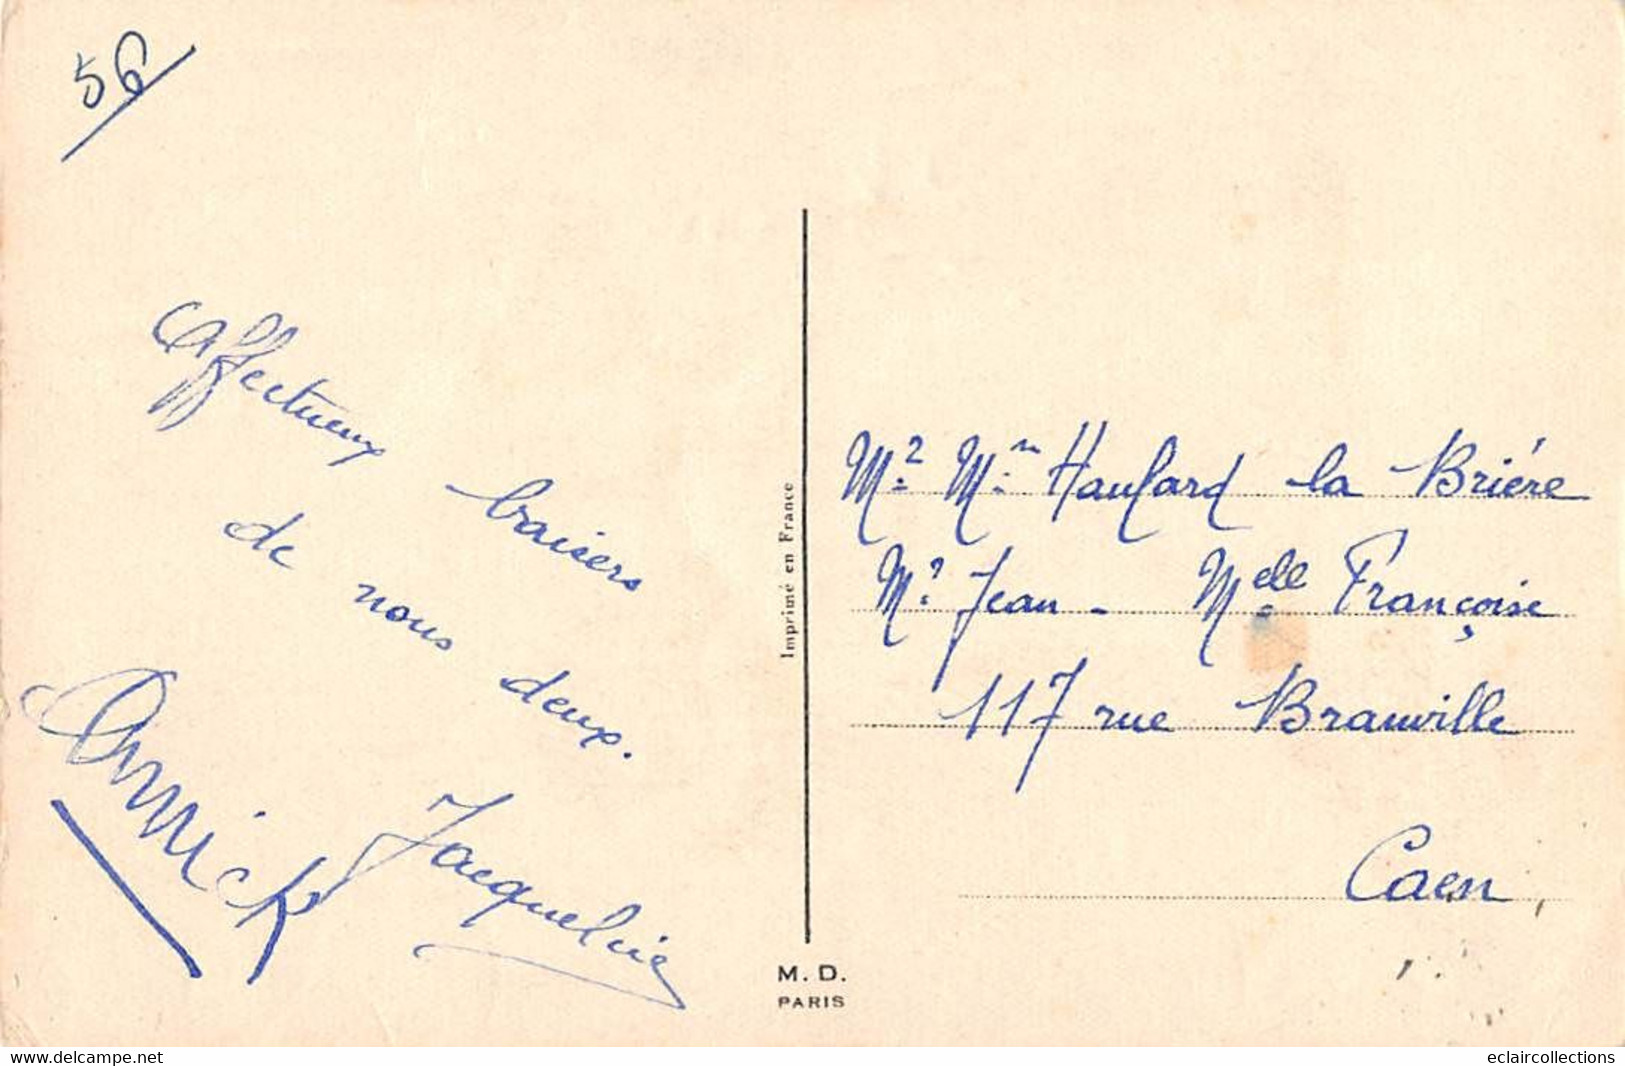 56
Affectueux baisers
de nous deux.
Annick
Jacqueline
Imprimé en France
M. D.
PARIS
Mr. Mm. Haulard la Brière
Mr. Jean - Melle Françoise
117 rue Branville
Caen
www.delcampe.net
eclaircollections